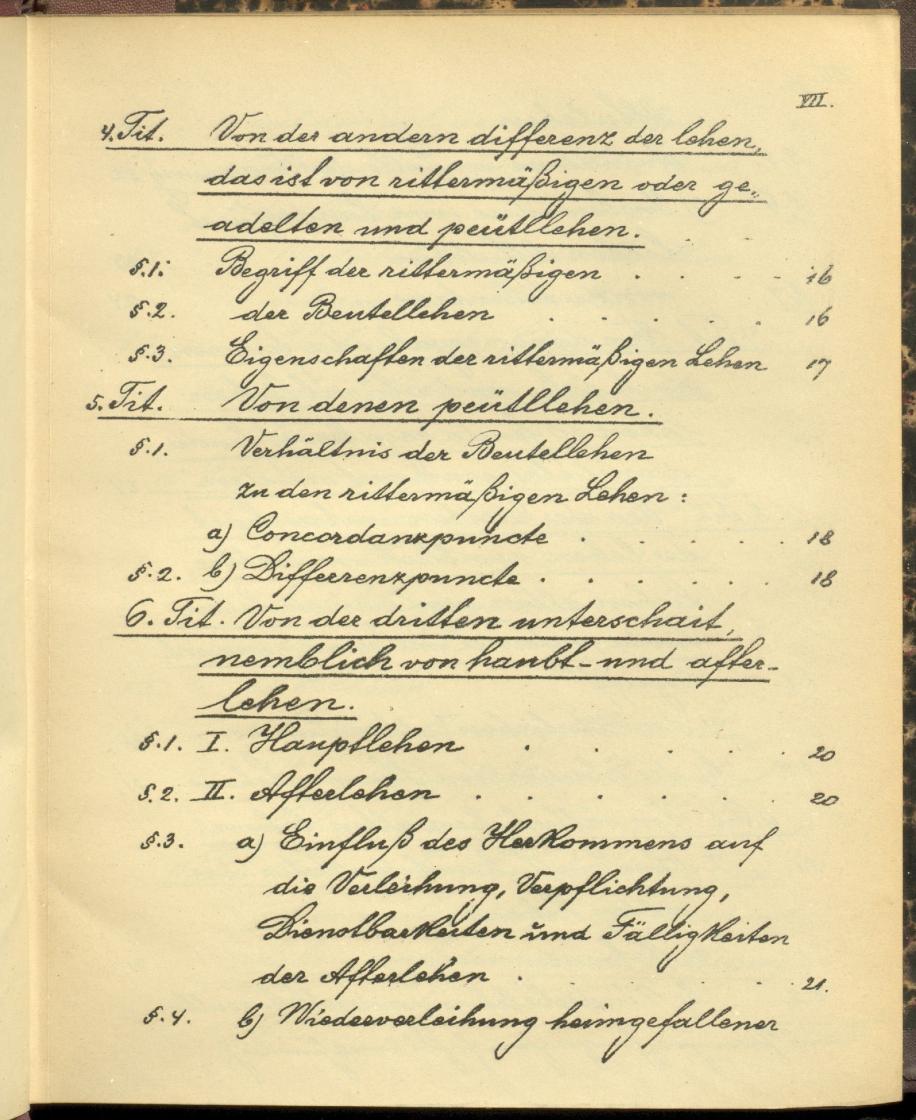 VII.
4. Tit. Von der andern differenz der lehen,
das ist von rittermäßigen oder ge„
adelten und peütllehen.
§.1. Begriff der rittermäßigen . . . . 16
§.2. der Beutellehen . . . . . 16
§.3. Eigenschaften der rittermäßigen Lehen 17
5. Tit. Von denen peütllehen.
§.1. Verhältnis der Beutellehen
zu den rittermäßigen Lehen :
a) Concordanzpuncte . . . . . 18
§.2. b) Differenzpuncte . . . . . 18
6. Tit. Von der dritten unterschait,
nemblich von haubt- und after-
lehen.
§.1. I. Hauptlehen . . . . . 20
§.2. II. Afterlehen . . . . . . 20
§.3. a) Einfluß des Herkommens auf
die Verleihung, Verpflichtung,
Dienstbarkeiten und Fälligkeiten
der Afterlehen . . . . . 21.
§.4. b) Wiederverleihung heimgefallener